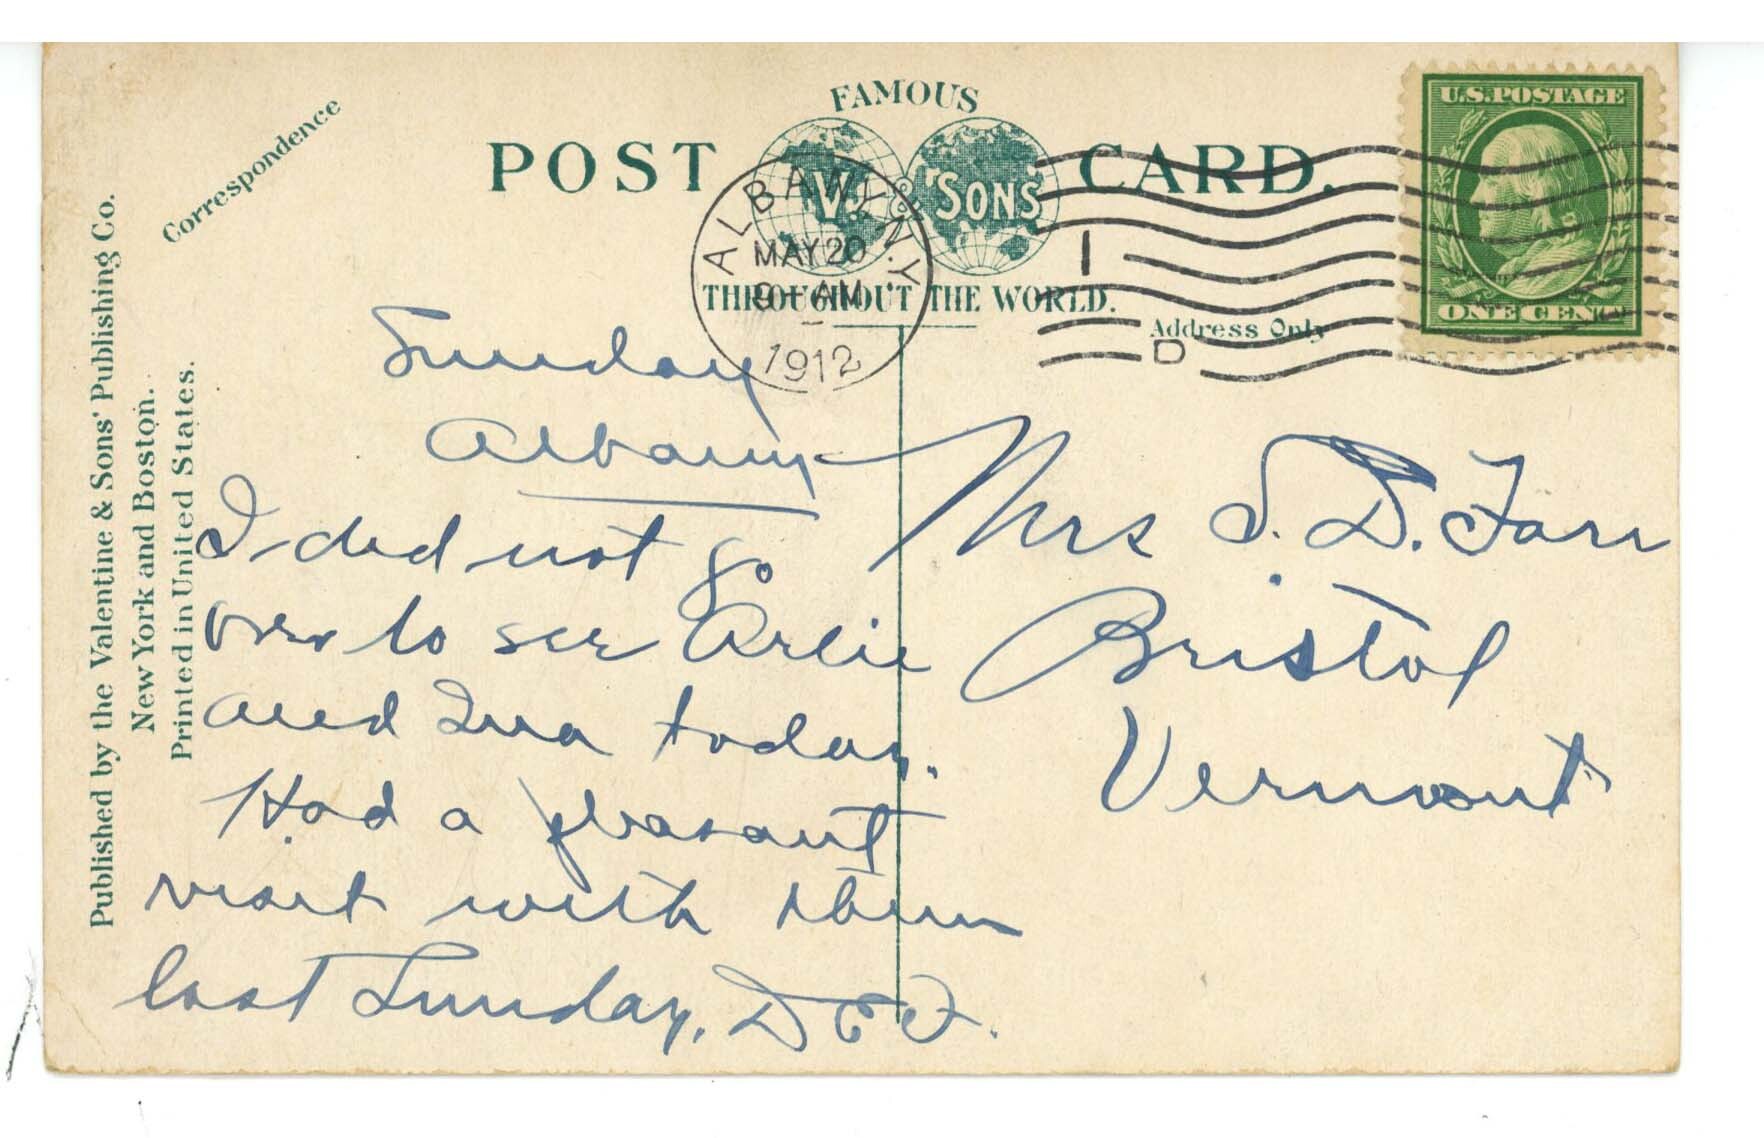 Correspondence
FAMOUS
POST CARD.
V. & SONS'
THROUGHOUT THE WORLD.
Address Only
U.S. POSTAGE
ONE CENT
ALBANY, N.Y.
MAY 20
9 - AM
1912
1
D
Published by the Valentine & Sons' Publishing Co.
New York and Boston.
Printed in United States.
Sunday
Albany
I did not go
over to see Arlie
and Ina today.
Had a pleasant
visit with them
last Sunday. D E F.
Mrs S. D. Farr
Bristol
Vermont